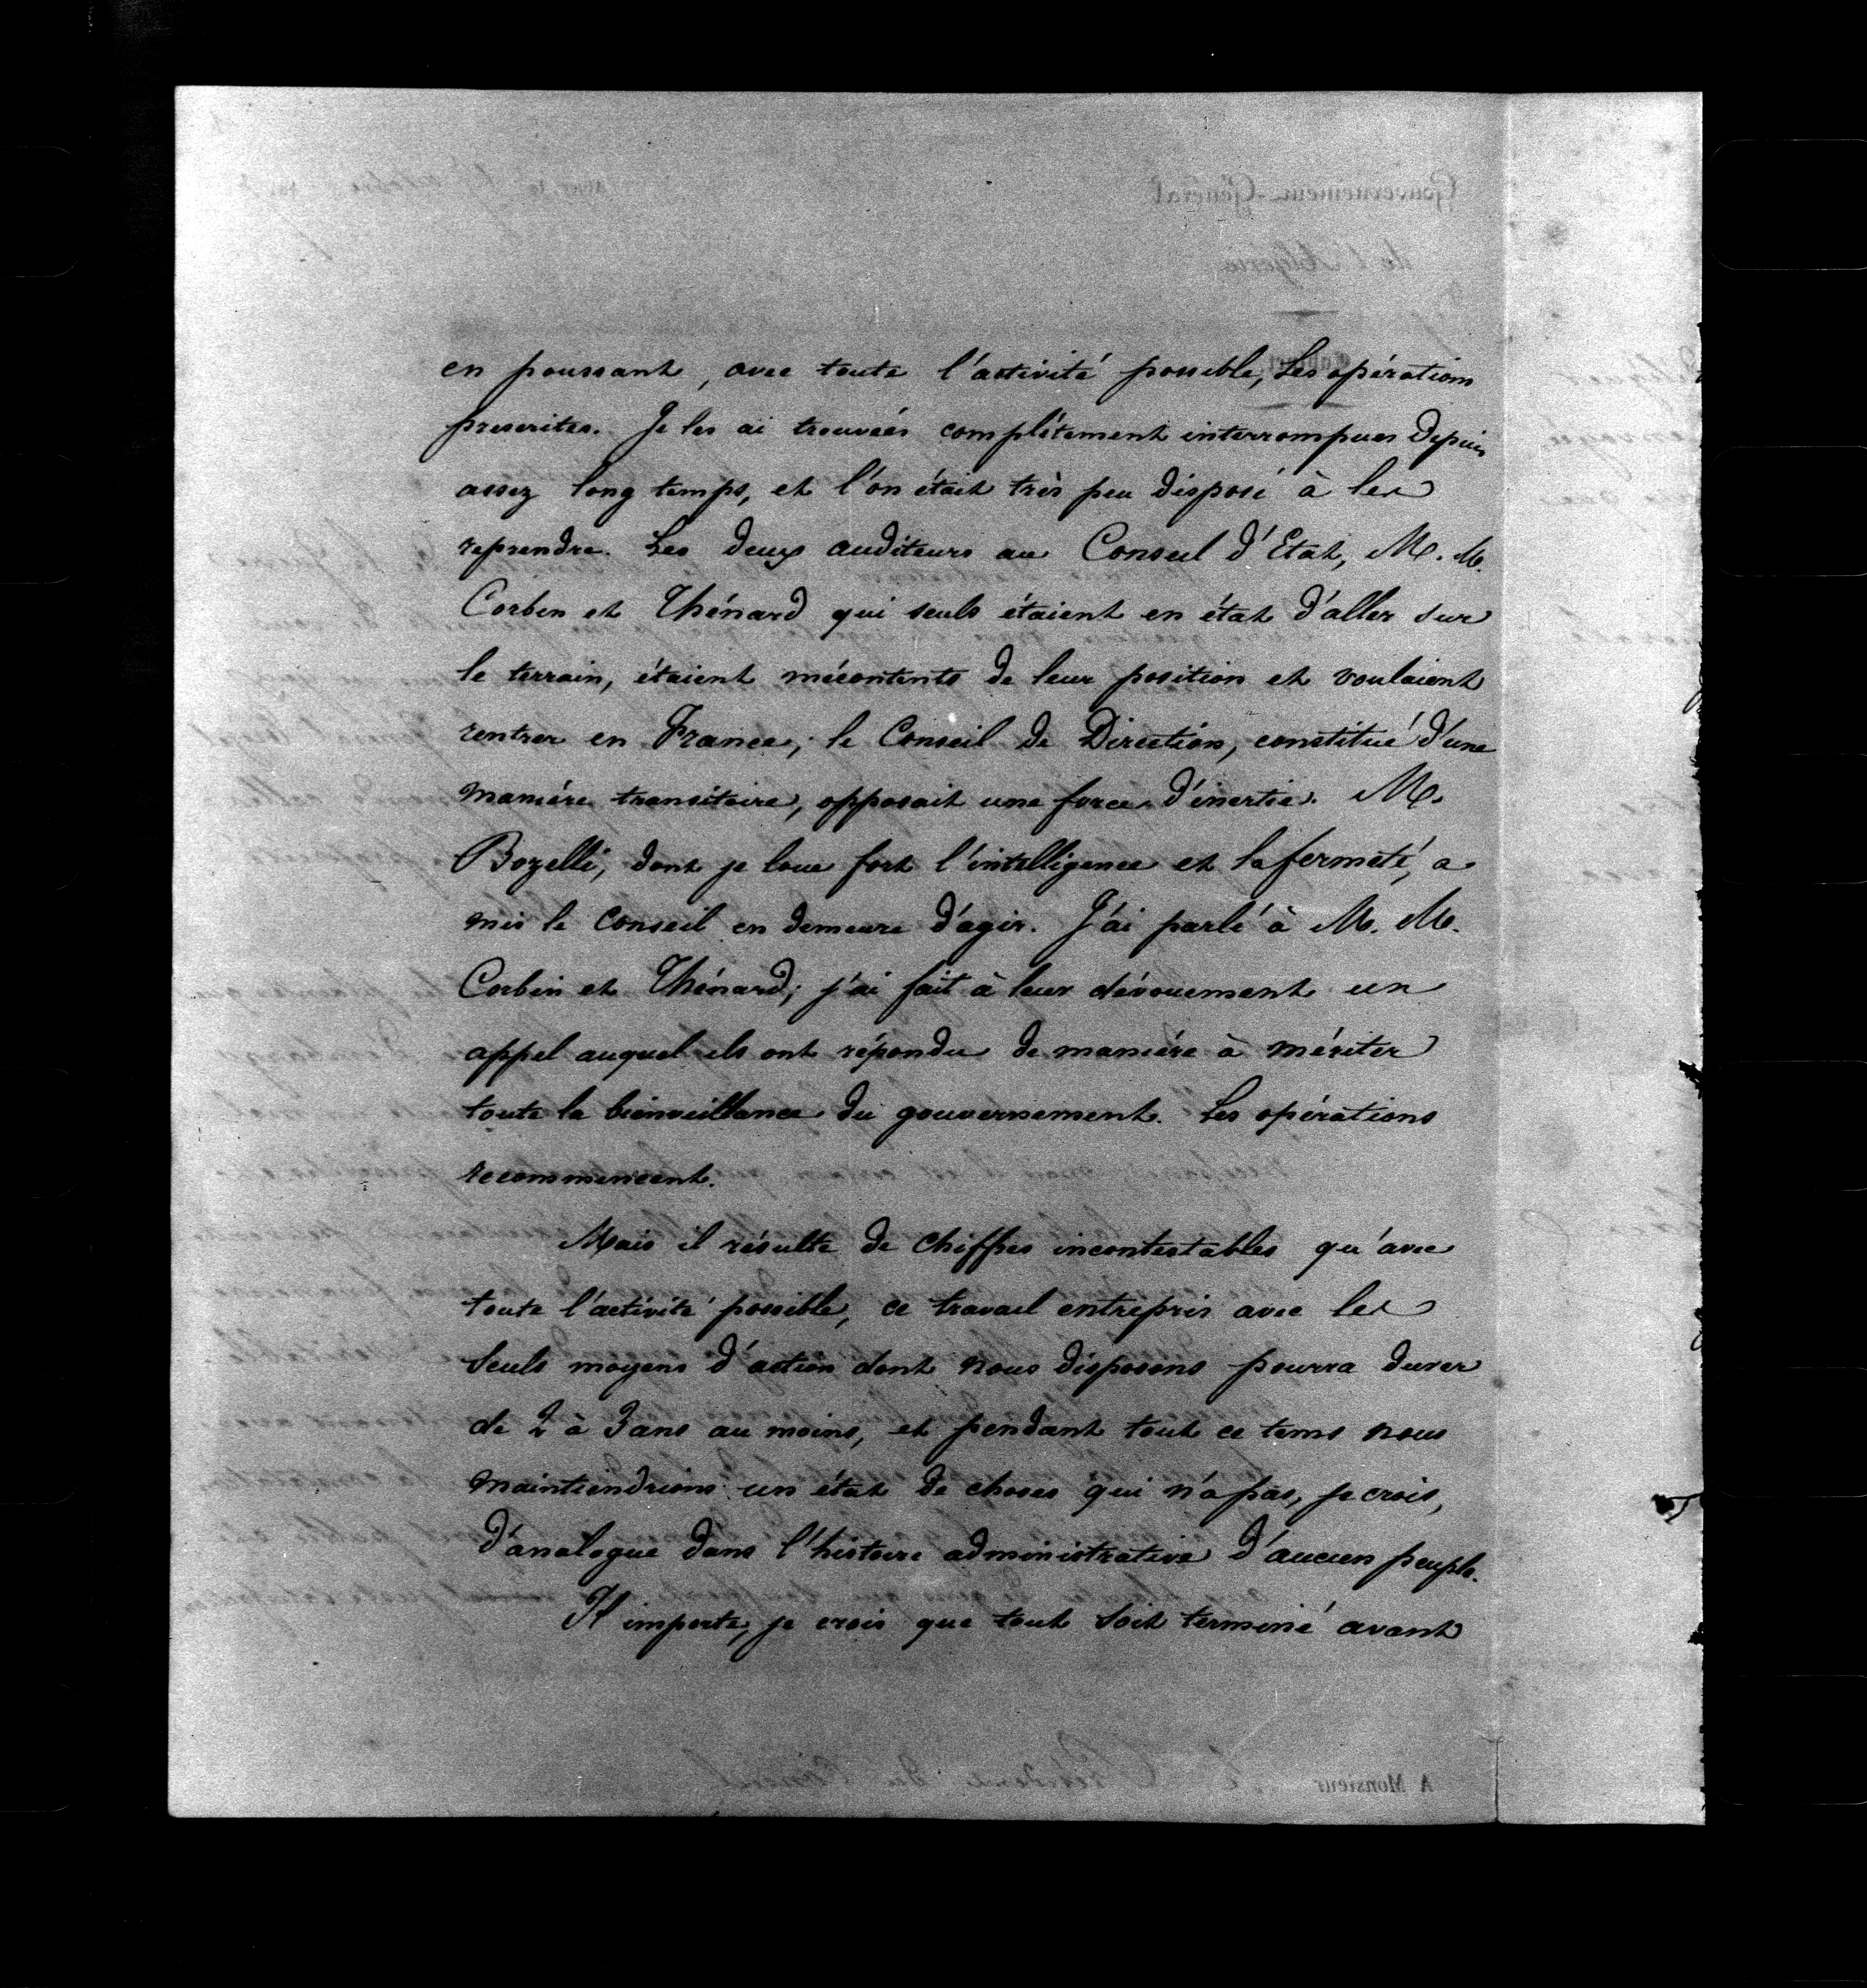 en poussant, avec toute l'activité possible, les opérations
prescrites. Je les ai trouvées complètement interrompues depuis
assez long temps, et l'on était très peu disposé à les
reprendre. Les deux auditeurs au Conseil d'Etat, M. M.
Corbin et Thénard qui seuls étaient en état d'aller sur
le terrain, étaient mécontents de leur position et voulaient
rentrer en France; le Conseil de Direction, constitué d'une
manière transitoire, opposait une force d'inertie. M.
Bozelli, dont je loue fort l'intelligence et la fermeté, a
mis le Conseil en demeure d'agir. J'ai parlé à M. M.
Corbin et Thénard; j'ai fait à leur dévouement un
appel auquel ils ont répondu de manière à mériter
toute la bienveillance du gouvernement. Les opérations
recommencent.
Mais il résulte de chiffres incontestables qu'avec
toute l'activité possible, ce travail entrepris avec les
seuls moyens d'action dont nous disposons pourra durer
de 2 à 3 ans au moins, et pendant tout ce tems nous
maintiendrions un état de choses qui n'a pas, je crois,
d'analogue dans l'histoire administrative d'aucun peuple.
Il importe, je crois que tout soit terminé avant